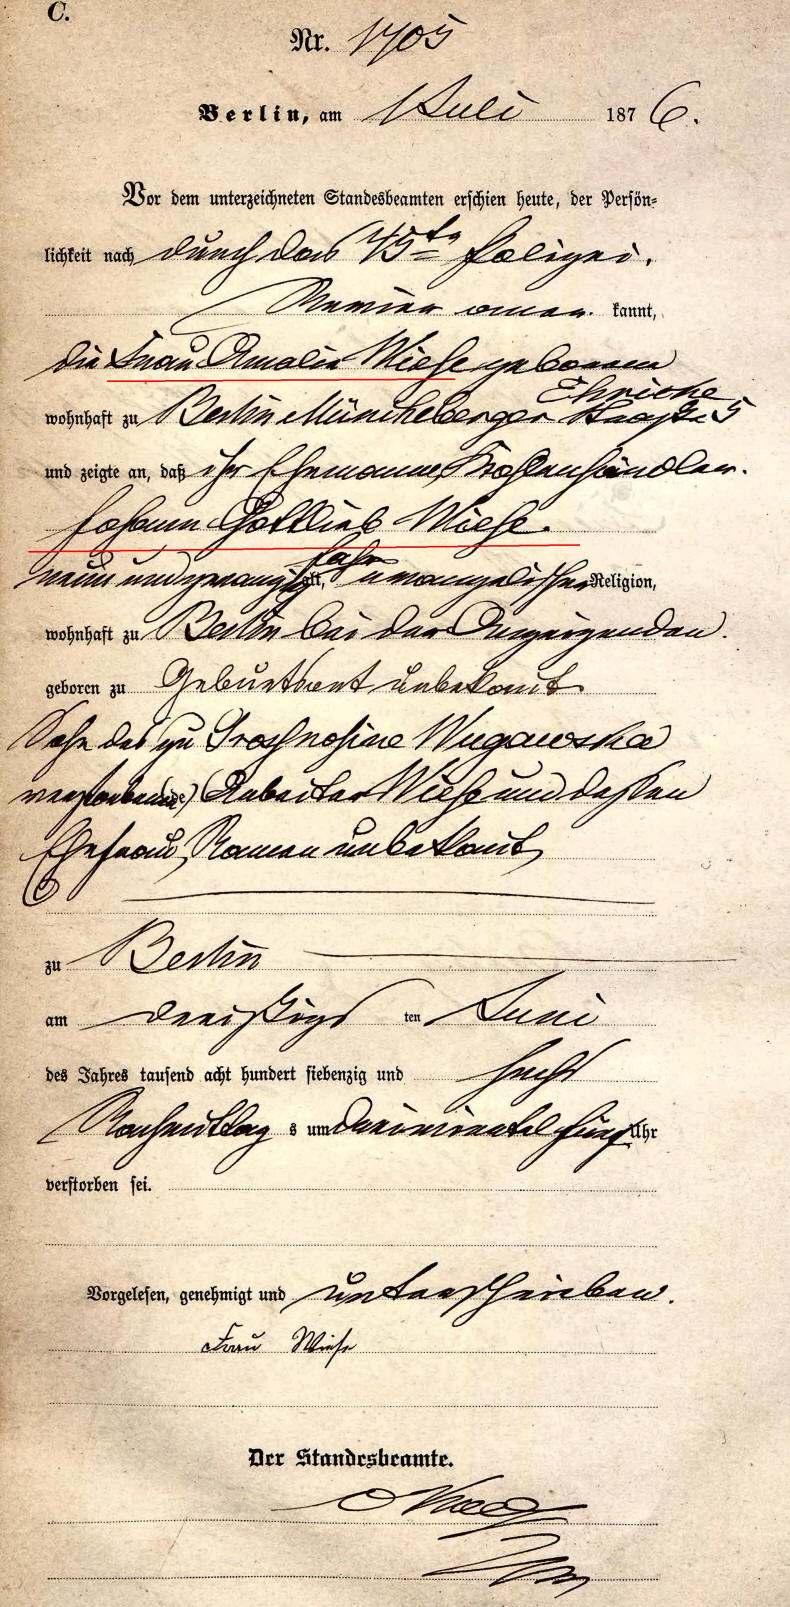 C.
Nr. 1705
Berlin, am 1 Juli 1876.
Vor dem unterzeichneten Standesbeamten erschien heute, der Persön-
lichkeit nach durch das 45te Polizei.
Revier aner kannt,
die Frau Amalie Wiese geborene
Ehricke
wohnhaft zu Berlin Müncheberger Straße 5
und zeigte an, daß ihr Ehemann, Kohlenhändler.
Johann Gottlieb Wiese.
Jahr
neun und zwanzig alt, evangelischer Religion,
wohnhaft zu Berlin bei der Anzeigenden.
geboren zu Geburtsort unbekannt
Sohn des zu Wugawska
verstorbenen Arbeiter Wiese und dessen
Ehefrau, Namen unbekannt
zu Berlin
am dreißigs ten Juni
des Jahres tausend acht hundert siebenzig und sechs
Nachmittag s um dreiviertel fünf Uhr
verstorben sei.
Vorgelesen, genehmigt und unterschrieben.
Frau Wiese
Der Standesbeamte.